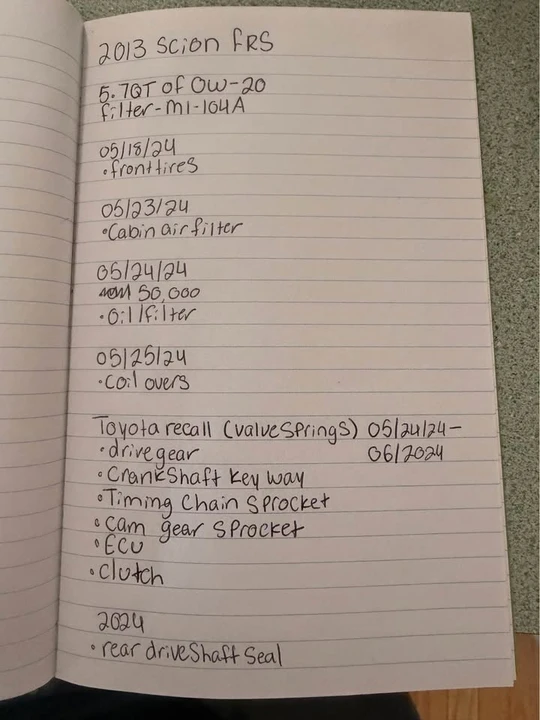 2013 Scion FRS
5.7QT of 0W-20
filter-M1-104A
05/18/24
•front tires
05/23/24
•Cabin air filter
05/24/24
50,000
•oil/filter
05/25/24
•coil overs
Toyota recall (valve springs) 05/24/24-
•drive gear 06/2024
•Crankshaft key way
•Timing Chain Sprocket
•cam gear sprocket
•ECU
•Clutch
2024
•rear driveshaft seal